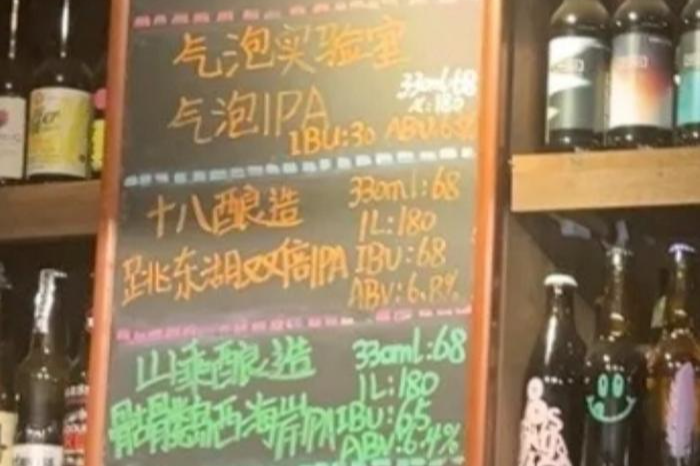 气泡实验室
气泡IPA 330ml:68
1L:180
IBU:30 ABV:6.5%
十八酿造 330ml:68
1L:180
跳东湖双倍IPA IBU:68
ABV:6.8%
山乘酿造 330ml:68
1L:180
骷髅岛西海岸IPA IBU:65
ABV:6.4%